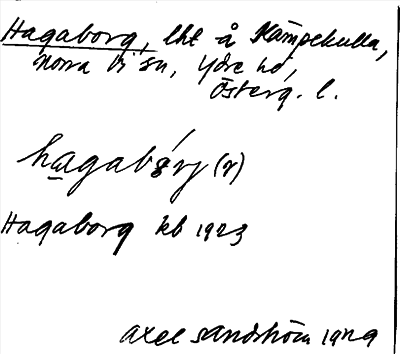 Hagaborg, lht å Kämpekulla,
Norra Vi sn, Ydre hd,
Österg. l.
hagabórj (r)
Hagaborg kb 1923
Axel Sandström 1929